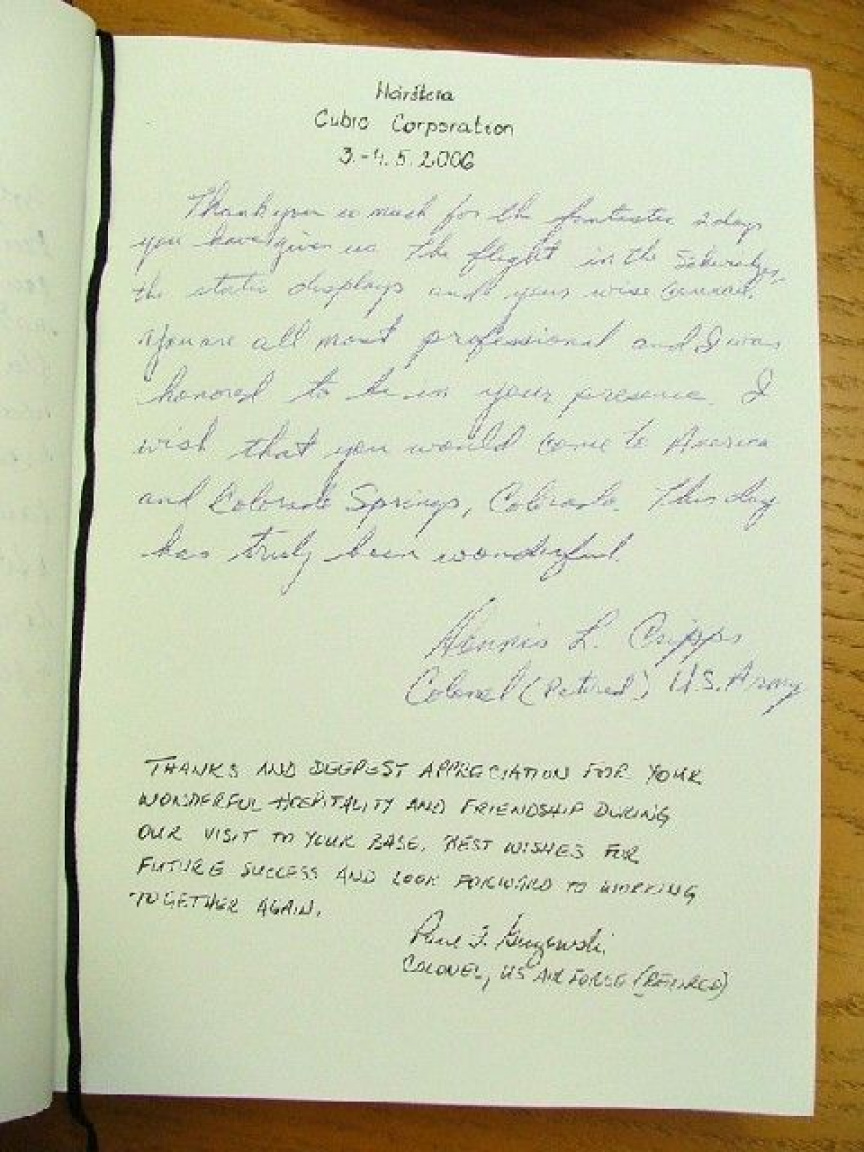 Návštěva
Cubic Corporation
3.-4.5.2006
Thank you so much for the fantastic 2 days
you have given us. The flight in the
the static displays and your wise counsel.
You are all most professional and I was
honored to be in your presence. I
wish that you would come to America
and Colorado Springs, Colorado. This day
has truly been wonderful.
Dennis L. Cripps
Colonel (Retired) U.S. Army
THANKS AND DEEPEST APPRECIATION FOR YOUR
WONDERFUL HOSPITALITY AND FRIENDSHIP DURING
OUR VISIT TO YOUR BASE. BEST WISHES FOR
FUTURE SUCCESS AND LOOK FORWARD TO WORKING
TOGETHER AGAIN.
Paul F.
COLONEL, US AIR FORCE (RETIRED)